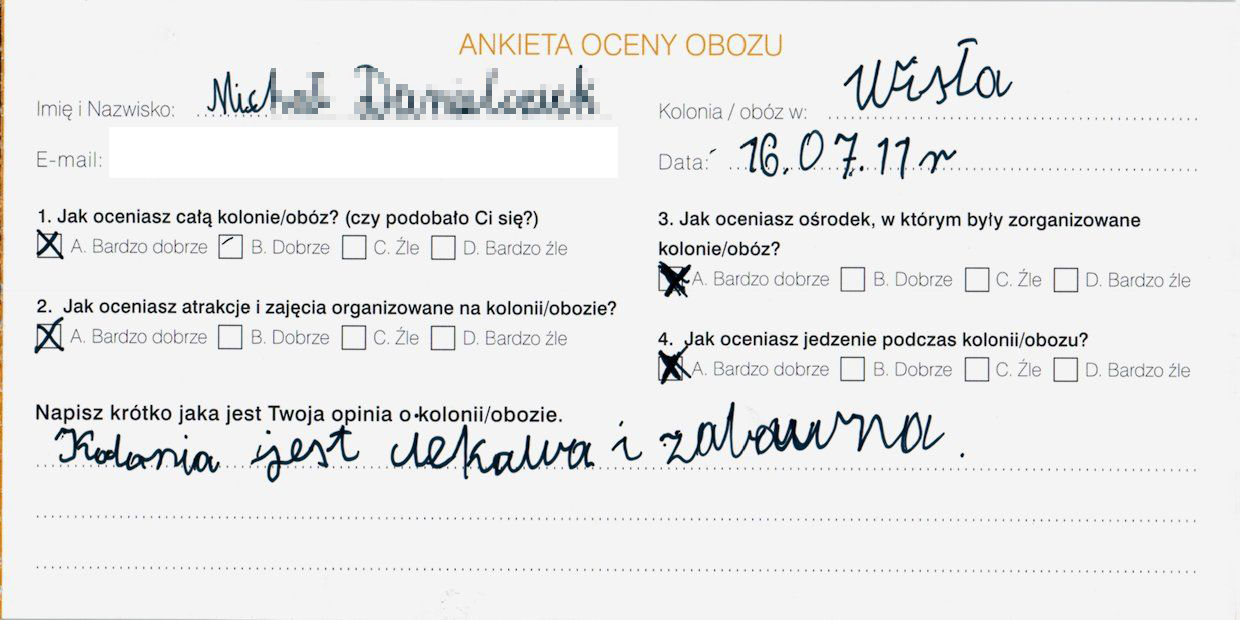 ANKIETA OCENY OBOZU
Imię i Nazwisko:
Kolonia / obóz w: Wisła
E-mail:
Data: 16.07.11 r
1. Jak oceniasz całą kolonie/obóz? (czy podobało Ci się?)
A. Bardzo dobrze B. Dobrze C. Źle D. Bardzo źle
2. Jak oceniasz atrakcje i zajęcia organizowane na kolonii/obozie?
A. Bardzo dobrze B. Dobrze C. Źle D. Bardzo źle
3. Jak oceniasz ośrodek, w którym były zorganizowane
kolonie/obóz?
A. Bardzo dobrze B. Dobrze C. Źle D. Bardzo źle
4. Jak oceniasz jedzenie podczas kolonii/obozu?
A. Bardzo dobrze B. Dobrze C. Źle D. Bardzo źle
Napisz krótko jaka jest Twoja opinia o kolonii/obozie.
Kolonia jest ciekawa i zabawna.